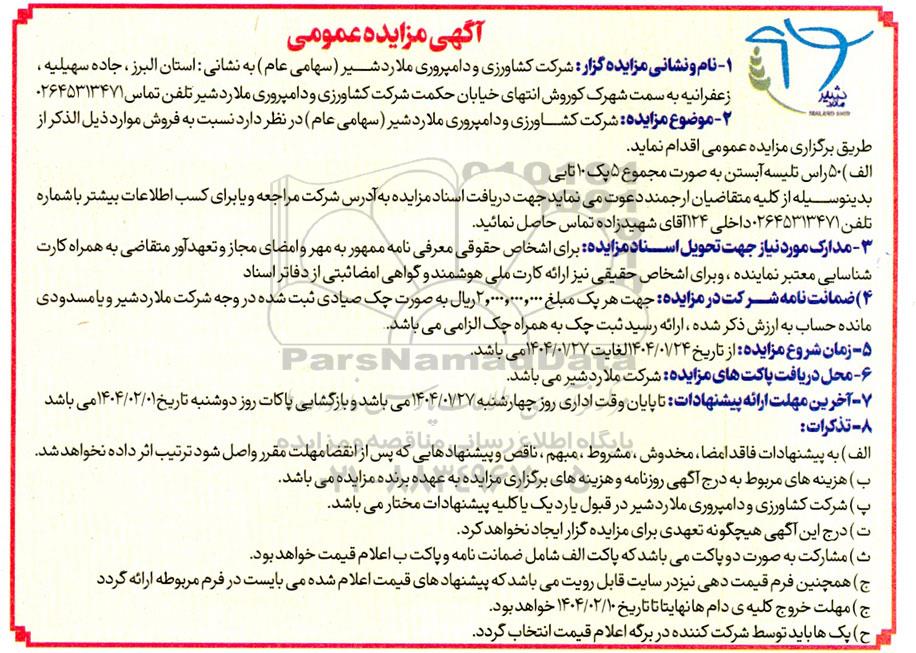 آگهی مزایده عمومی
۱- نام و نشانی مزایده گزار: شرکت کشاورزی و دامپروری ملارد شیر (سهامی عام) به نشانی: استان البرز، جاده سهیلیه،
زعفرانیه به سمت شهرک کوروش انتهای خیابان حکمت شرکت کشاورزی و دامپروری ملارد شیر تلفن تماس ۰۲۶۴۵۳۱۳۴۷۱
۲- موضوع مزایده: شرکت کشاورزی و دامپروری ملارد شیر (سهامی عام) در نظر دارد نسبت به فروش موارد ذیل الذکر از
طریق برگزاری مزایده عمومی اقدام نماید.
الف) ۵۰ راس تلیسه آبستن به صورت مجموع ۵ پک ۱۰ تایی
بدینوسیله از کلیه متقاضیان ارجمند دعوت می نماید جهت دریافت اسناد مزایده به آدرس شرکت مراجعه و یا برای کسب اطلاعات بیشتر با شماره
تلفن ۰۲۶۴۵۳۱۳۴۷۱ داخلی ۱۲۴ آقای شهیدزاده تماس حاصل نمائید.
۳- مدارک مورد نیاز جهت تحویل اسناد مزایده: برای اشخاص حقوقی معرفی نامه ممهور به مهر و امضای مجاز و تعهدآور متقاضی به همراه کارت
شناسایی معتبر نماینده، و برای اشخاص حقیقی نیز ارائه کارت ملی هوشمند و گواهی امضا ثبتی از دفاتر اسناد
۴) ضمانت نامه شرکت در مزایده: جهت هر پک مبلغ ۲,۰۰۰,۰۰۰,۰۰۰ ریال به صورت چک صیادی ثبت شده در وجه شرکت ملارد شیر و یا مسدودی
مانده حساب به ارزش ذکر شده، ارائه رسید ثبت چک به همراه چک الزامی می باشد.
۵- زمان شروع مزایده: از تاریخ ۱۴۰۴/۰۱/۲۴ لغایت ۱۴۰۴/۰۱/۲۷ می باشد.
۶- محل دریافت پاکت های مزایده: شرکت ملارد شیر می باشد.
۷- آخرین مهلت ارائه پیشنهادات: تا پایان وقت اداری روز چهارشنبه ۱۴۰۴/۰۱/۲۷ می باشد و بازگشایی پاکات روز دوشنبه تاریخ ۱۴۰۴/۰۲/۰۱ می باشد
۸- تذکرات:
الف) به پیشنهادات فاقد امضا، مخدوش، مشروط، مبهم، ناقص و پیشنهادهایی که پس از انقضا مهلت مقرر واصل شود ترتیب اثر داده نخواهد شد.
ب) هزینه های مربوط به درج آگهی روزنامه و هزینه های برگزاری مزایده به عهده برنده مزایده می باشد.
پ) شرکت کشاورزی و دامپروری ملارد شیر در قبول یا رد یک یا کلیه پیشنهادات مختار می باشد.
ت) درج این آگهی هیچگونه تعهدی برای مزایده گزار ایجاد نخواهد کرد.
ث) مشارکت به صورت دو پاکت می باشد که پاکت الف شامل ضمانت نامه و پاکت ب اعلام قیمت خواهد بود.
ج) همچنین فرم قیمت دهی نیز در سایت قابل رویت می باشد که پیشنهادهای قیمت اعلام شده می بایست در فرم مربوطه ارائه گردد
چ) مهلت خروج کلیه ی دام ها نهایتا تا تاریخ ۱۴۰۴/۰۲/۱۰ خواهد بود.
ح) پک ها باید توسط شرکت کننده در برگه اعلام قیمت انتخاب گردد.
ParsNamadData
پایگاه اطلاع رسانی مناقصه و مزایده